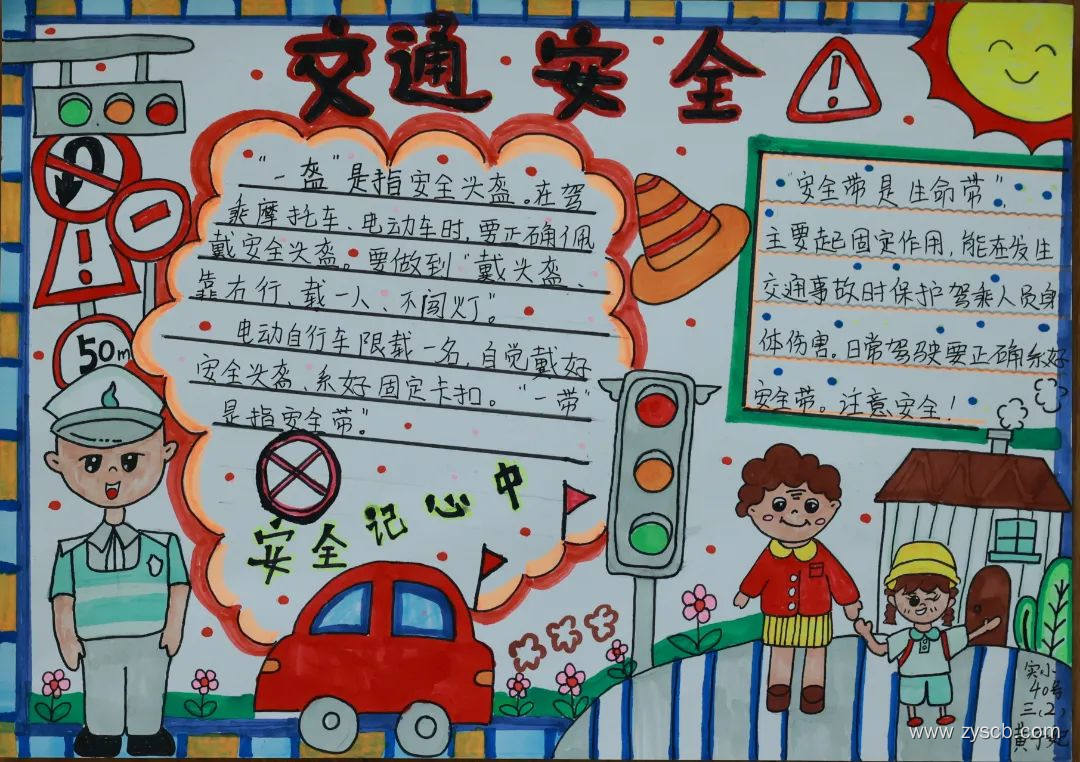 交通安全
“一盔”是指安全头盔。在驾
乘摩托车、电动车时,要正确佩
戴安全头盔。要做到“戴头盔、
靠右行、载一人、不闯灯”。
电动自行车限载一名,自觉戴好
安全头盔、系好固定卡扣。“一带”
是指安全带。”
安全记心中
50m
“安全带是生命带”。
主要起固定作用,能在发生
交通事故时保护驾乘人员身
体伤害。日常驾驶要正确系好
安全带。注意安全!
实小
40号
三(2)
www.zyscb.com